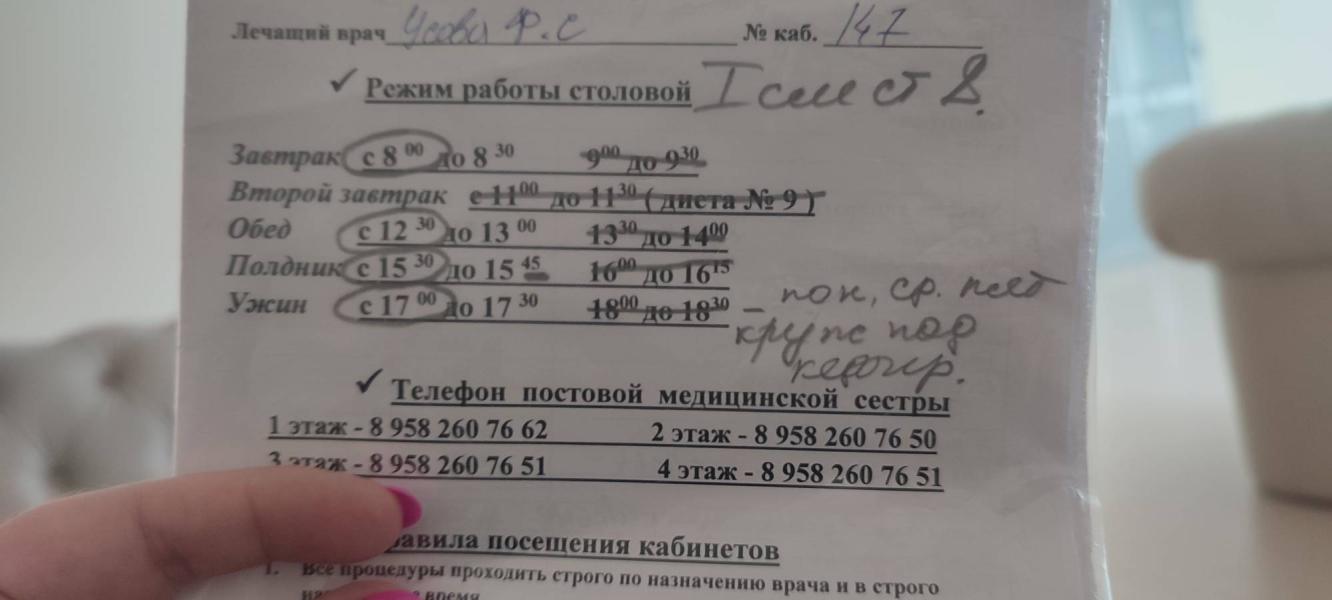 Лечащий врач Усова Ф.С № каб. 147
✓ Режим работы столовой I см ст 8.
Завтрак с 8 00 до 8 30 9 00 до 9 30
Второй завтрак с 11 00 до 11 30 ( диета № 9 )
Обед с 12 30 до 13 00 13 30 до 14 00
Полдник с 15 30 до 15 45 16 00 до 16 15
Ужин с 17 00 до 17 30 18 00 до 18 30 – пон, ср.
под
✓ Телефон постовой медицинской сестры
1 этаж - 8 958 260 76 62 2 этаж - 8 958 260 76 50
3 этаж - 8 958 260 76 51 4 этаж - 8 958 260 76 51
посещения кабинетов
1. Все процедуры проходить строго по назначению врача и в строго
время